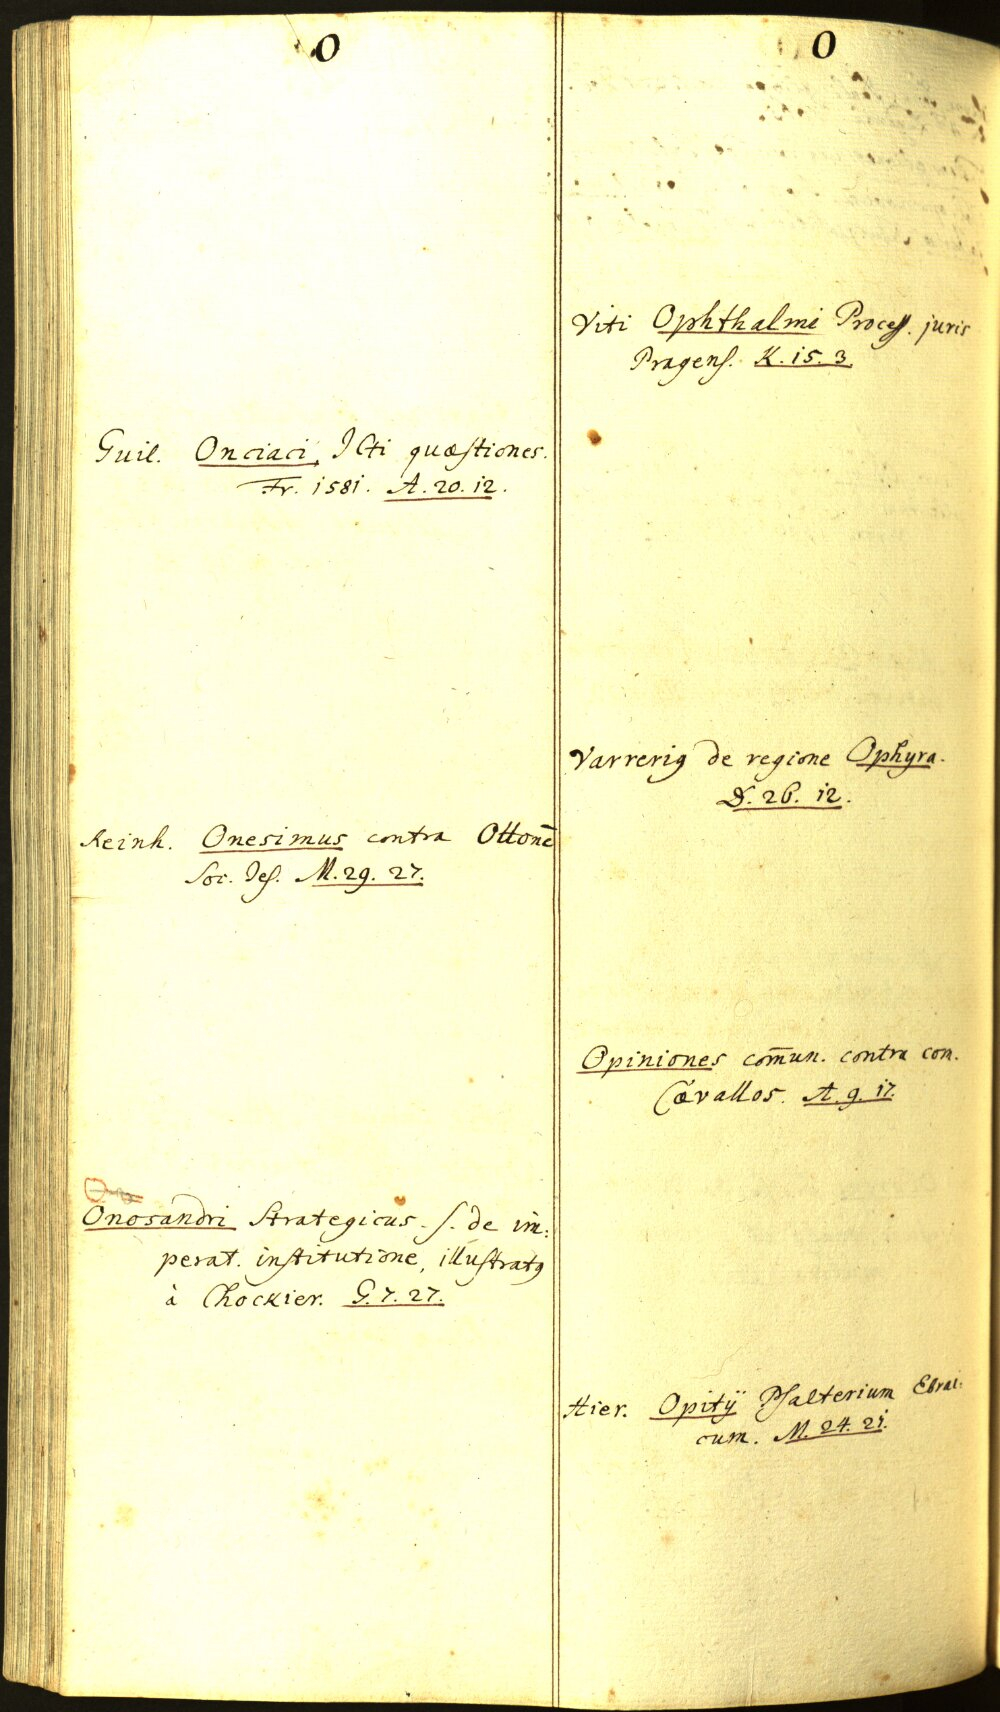 O
Guil. Onciaci, ICti quæstiones.
Fr. 1581. A. 20. 12.
Reinh. Onesimus contra Ottonē
Soc. Jes. M. 29. 27.
Onosandri Strategicus. s. de im:
perat. institutione, illustratꝰ
à Chockier. G. 7. 27.
O
Viti Ophthalmi Process. juris
Pragens. K. 15. 3.
Varreriꝰ de regione Ophyra.
26. 12.
Opiniones com̄un. contra com.
Cævallos. A. 9. 17.
Hier. Opitÿ Psalterium Ebrai:
cum. M. 24. 21.